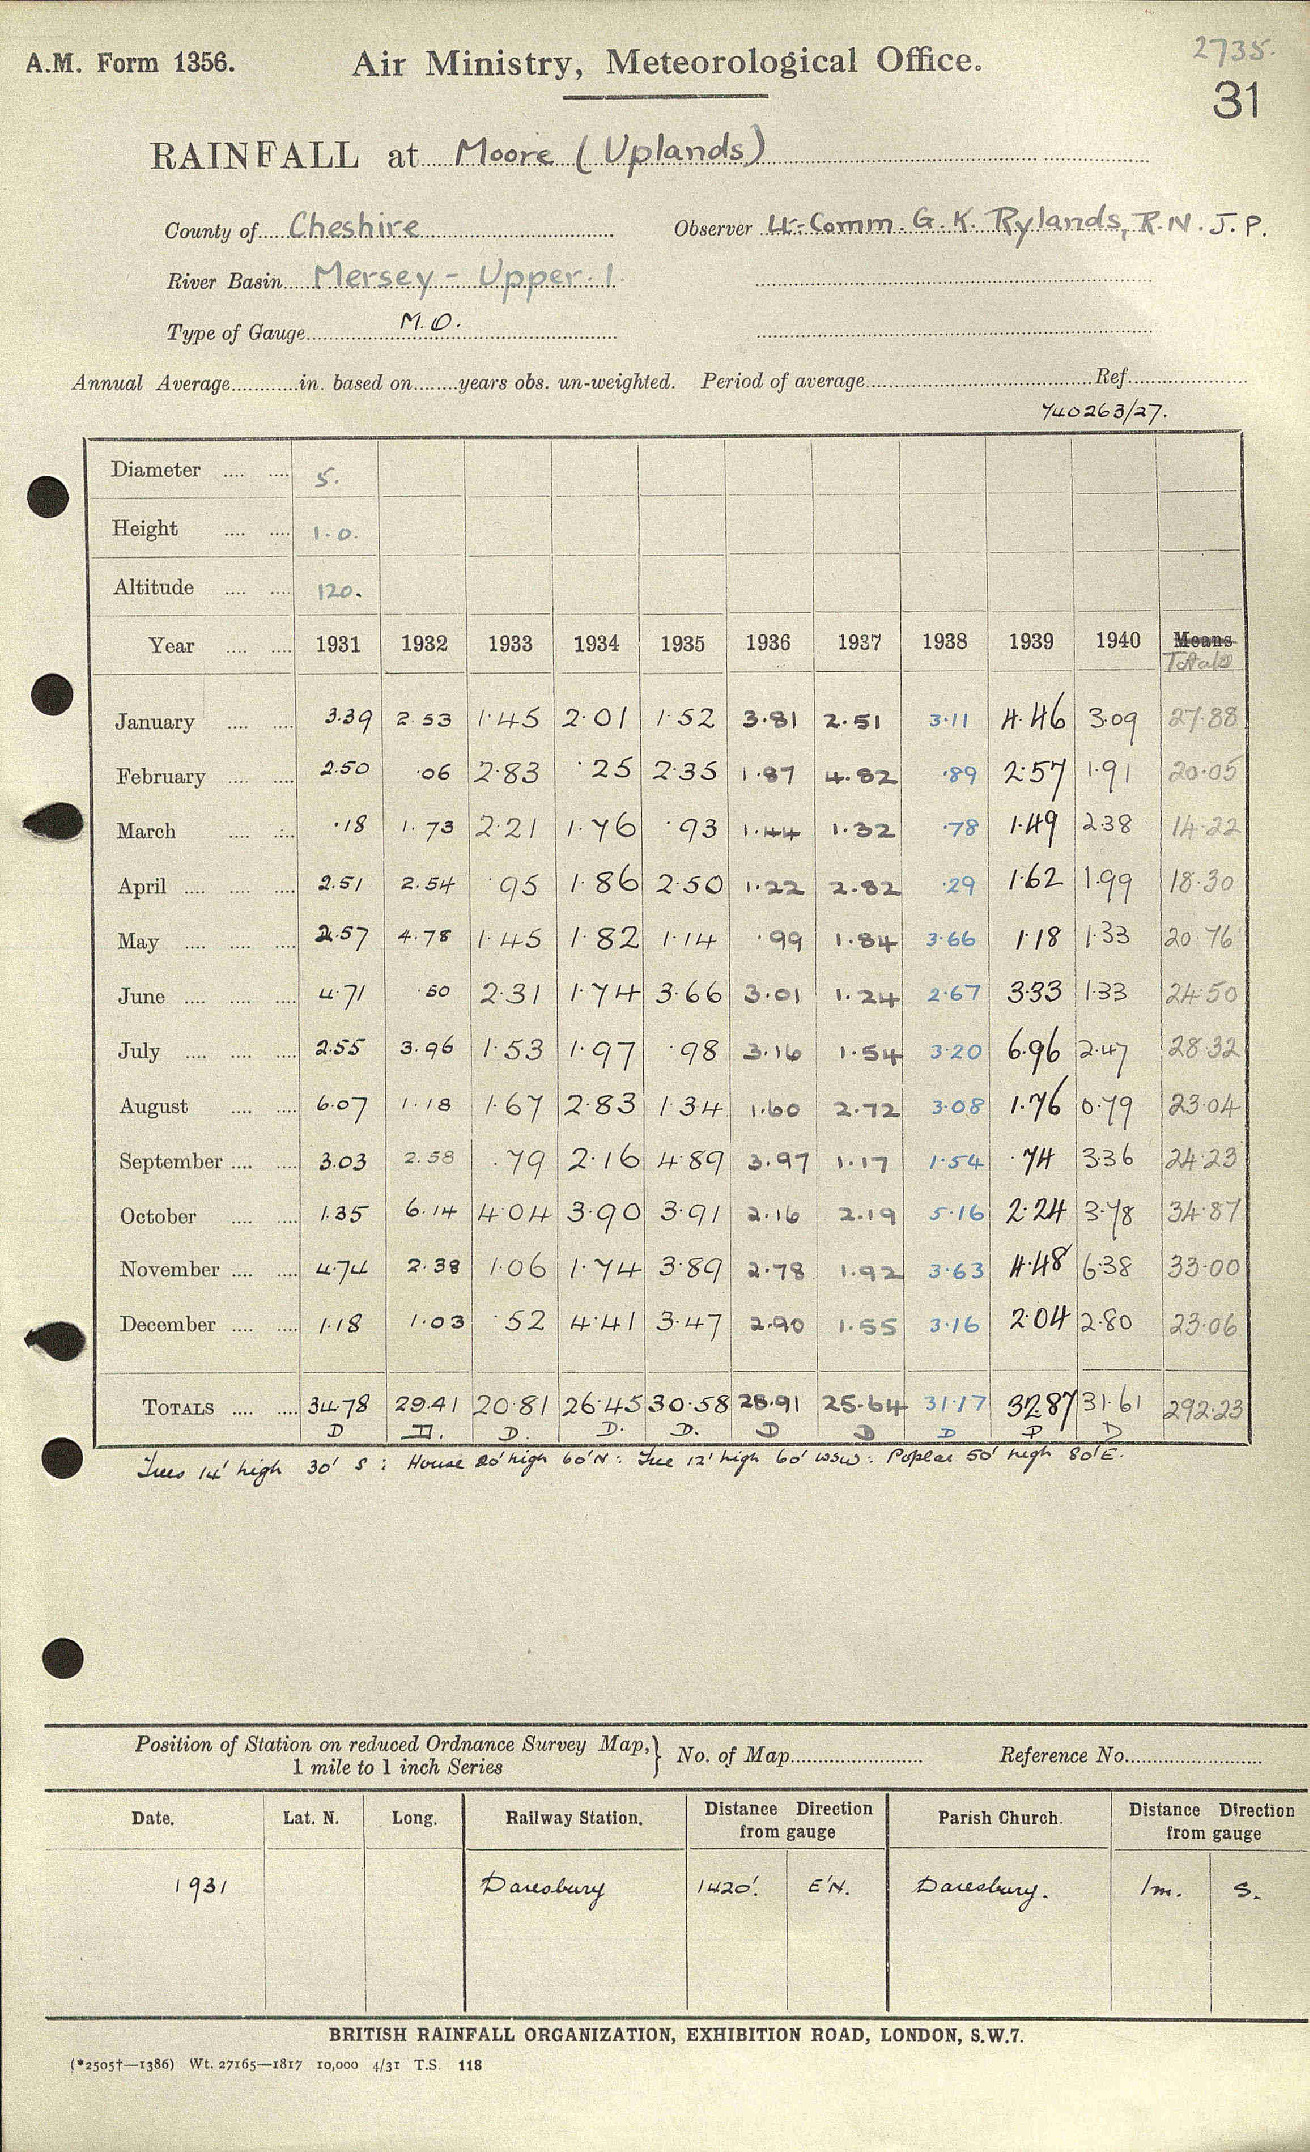 A.M. Form 1356. Air Ministry, Meteorological Office. 2735.
31
RAINFALL at Moore (Uplands)
County of Cheshire Observer Lt-Comm. G. K. Rylands, R.N. J.P.
River Basin Mersey - Upper. 1
Type of Gauge M.O.
Annual Average in. based on years obs. un-weighted. Period of average Ref
740263/27.
Diameter 5.
Height 1.0.
Altitude 120.
Year 1931 1932 1933 1934 1935 1936 1937 1938 1939 1940 Means
Totals
January 3.39 2.53 1.45 2.01 1.52 3.81 2.51 3.11 4.46 3.09 27.88
February 2.50 .06 2.83 .25 2.35 1.87 4.82 .89 2.57 1.91 20.05
March .18 1.73 2.21 1.76 .93 1.44 1.32 .78 1.49 2.38 14.22
April 2.51 2.54 .95 1.86 2.50 1.22 2.82 .29 1.62 1.99 18.30
May 2.57 4.78 1.45 1.82 1.14 .99 1.84 3.66 1.18 1.33 20.76
June 4.71 .50 2.31 1.74 3.66 3.01 1.24 2.67 3.33 1.33 24.50
July 2.55 3.96 1.53 1.97 .98 3.16 1.54 3.20 6.96 2.47 28.32
August 6.07 1.18 1.67 2.83 1.34 1.60 2.72 3.08 1.76 0.79 23.04
September 3.03 2.58 .79 2.16 4.89 3.97 1.17 1.54 .74 3.36 24.23
October 1.35 6.14 4.04 3.90 3.91 2.16 2.19 5.16 2.24 3.78 34.87
November 4.74 2.38 1.06 1.74 3.89 2.78 1.92 3.63 4.48 6.38 33.00
December 1.18 1.03 .52 4.41 3.47 2.90 1.55 3.16 2.04 2.80 23.06
TOTALS 34.78 29.41 20.81 26.45 30.58 28.91 25.64 31.17 32.87 31.61 292.23
D D. D. D. D. D D D D D
Trees 14' high 30' S : House 20' high 60' N : Tree 12' high 60' WSW : Poplar 50' high 80' E.
Position of Station on reduced Ordnance Survey Map,
1 mile to 1 inch Series } No. of Map Reference No.
Date. Lat. N. Long. Railway Station. Distance Direction from gauge Parish Church. Distance Direction from gauge
1931 Daresbury 1420'. E'N. Daresbury. 1m. S.
BRITISH RAINFALL ORGANIZATION, EXHIBITION ROAD, LONDON, S.W.7.
(*2505†—1386) Wt. 27165—1817 10,000 4/31 T.S. 118